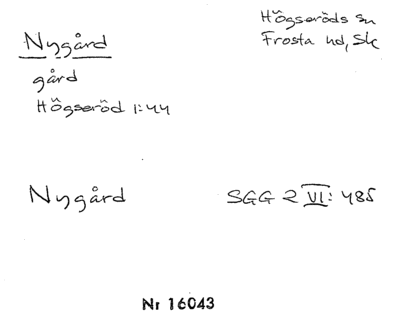 Nygård
Högseröds sn
Frosta hd, Sk
gård
Högseröd 1:44
Nygård
SGG 2 VI: 485
Nr 16043